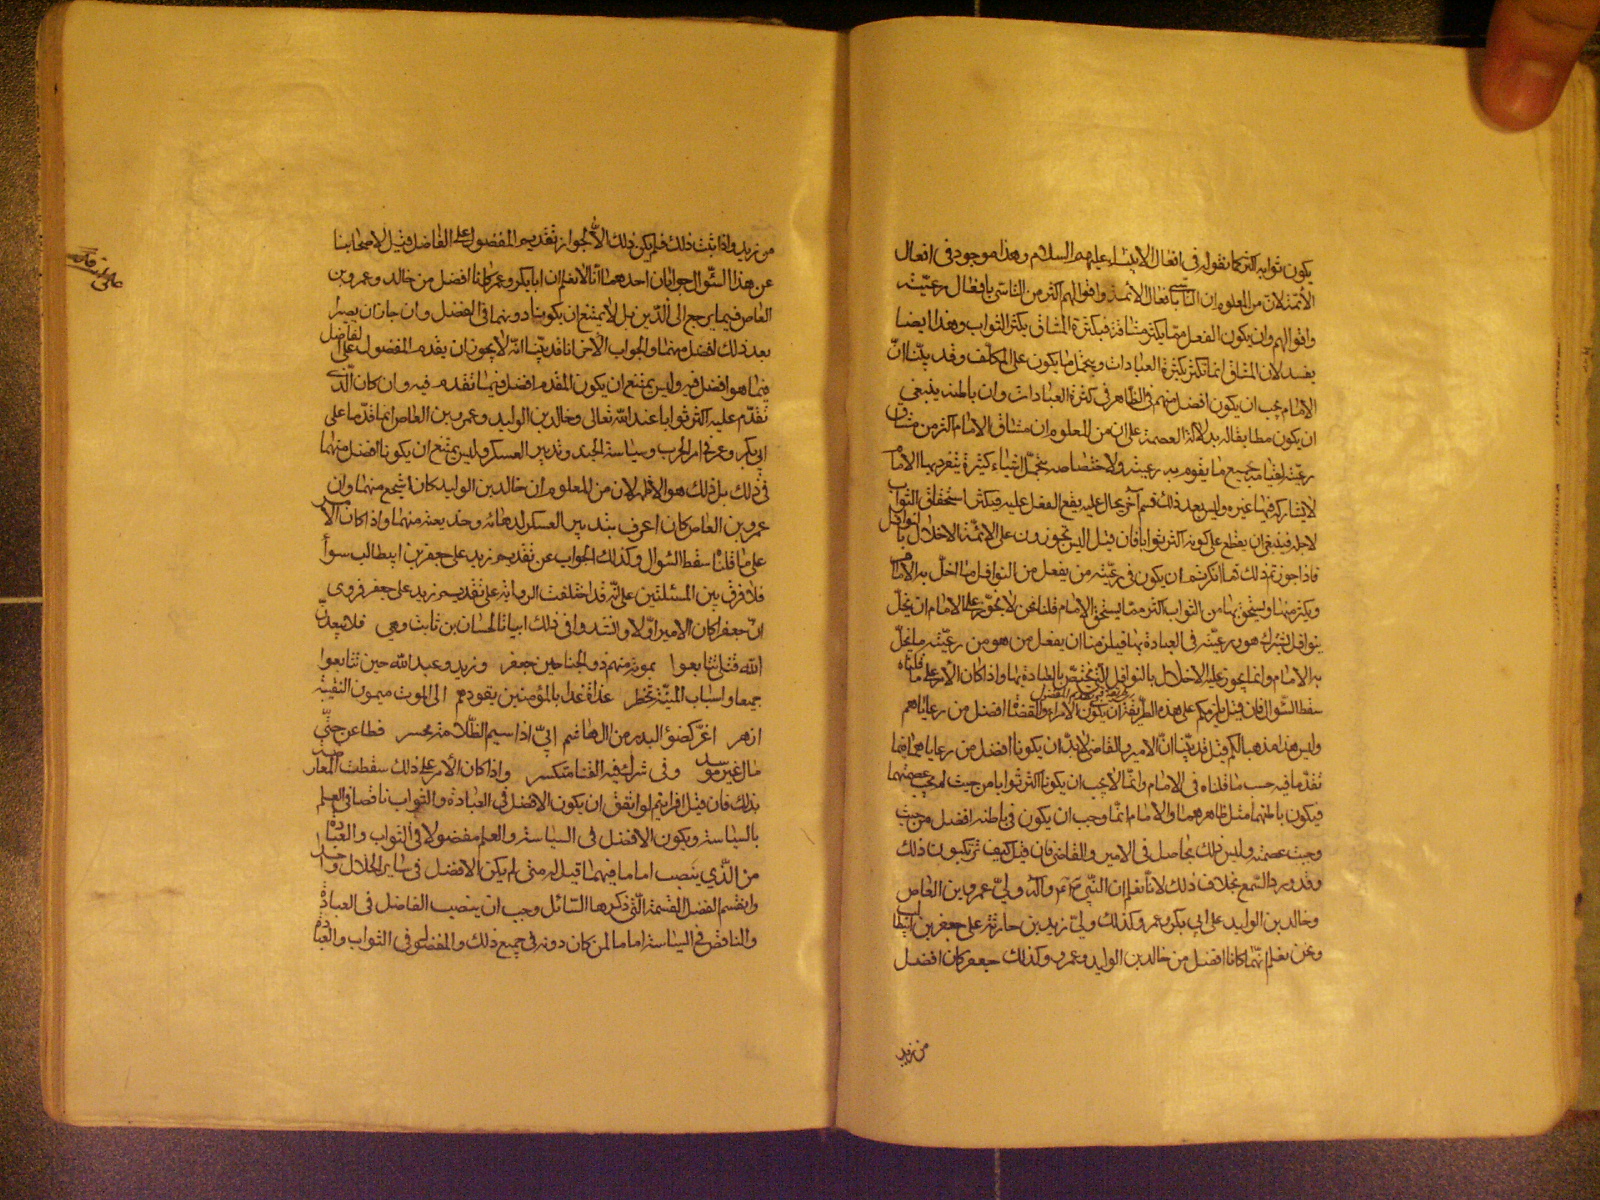 يكون ثوابه اكثر كما نقوله في افعال الانبياء عليهم السلام وهذا موجود في افعال
الائمة لان من المعلوم ان التاسي بافعال الائمة واقوالهم اكثر من التاسي بافعال رعيته
واقوالهم وان يكون الفعل مما يكثر مشاقه فبكثرة المشاق يكثر الثواب وهذا ايضا
يفسد لان المشاق انما تكثر بكثرة العبادات وبتحمل ما يكون على المكلف وقد بيّنا انّ
الامام يجب ان يكون افضل منهم في الظاهر في كثرة العبادات وان باطنه ينبغي
ان يكون مطابقا له بدلالة العصمة على ان من المعلوم ان مشاق الامام اكثر من مشاق
رعيته لقيامه بجميع ما يقوم به رعيته ولاختصاصه بتحمل اشياء كثيرة يتفرد بها الامام
لا يشاركه فيها غيره وليس بعد ذلك قسم آخر يحال عليه يقع الفعل عليه فيكثر استحقاق الثواب
لاجله فينبغي ان يقطع على كونه اكثر ثوابا فان قيل اليس تجوزون على الائمّة الاخلال بالنوافل
فاذا جوزتم ذلك فما انكرتم ان يكون في رعيته من يفعل من النوافل ما اخل به الامام
ويكثر منها ويستحق بها من الثواب اكثر مما يستحق الامام قلنا نحن لا نجوّز على الامام ان يخلّ
بنوافل يشترك هو ورعيته في العبادة بها فيلزمنا ان يفعل من هو من رعيته ما يخلّ
به الامام وانما يجوز عليه الاخلال بالنوافل التي يختصّ بالعبادة بها واذا كان الامر على ما قلناه
سقط السؤال فان قيل يلزمكم على هذه الطريقة ان يكون الامراء والقضاة افضل من رعاياهم
وليس هذا مذهبا لكم قيل قد بيّنا انّ الامير والقاضي لا بدّ ان يكونا افضل من رعاياهما فيما
تقدّما فيه حسب ما قلناه في الامام وانّما لا يجب ان يكونا اكثر ثوابا من حيث لم يجب عصمتهما
فيكون باطنهما مثل ظاهرهما والامام انّما وجب ان يكون في باطنه افضل من حيث
وجبت عصمته وليس ذلك بحاصل في الامير والقاضي فان قيل كيف تركبون ذلك
وقد ورد السّمع بخلاف ذلك لانّا نعلم ان النّبي ولّى عمرو بن العاص
وخالد بن الوليد على ابي بكر وعمر وكذلك ولّى زيد بن حارثة على جعفر بن ابيطالب
ونحن نعلم انّهما كانا افضل من خالد بن الوليد وعمرو وكذلك جعفر كان افضل
من زيد
من زيد واذا ثبت ذلك فلم يكن ذلك الا لجواز تقديم المفضول على الفاضل قيل لاصحابنا
عن هذا السّؤال جوابان احدهما انّا لا نعلم ان ابا بكر وعمر كانا افضل من خالد وعمرو بن
العاص فيما يرجع الى الدّين بل لا يمتنع ان يكونا دونهما في الفضل وان جاز ان يصيرا
بعد ذلك افضل منهما والجواب الآخر انا قد بيّنا انّه لا يجوز ان يقدم المفضول على الفاضل
فيما هو افضل فيه وليس يمتنع ان يكون المقدم افضل فيما تقدم فيه وان كان الّذي
تقدّم عليه اكثر ثوابا عند الله تعالى وخالد بن الوليد وعمرو بن العاص انما قدّما على
ابي بكر وعمر في امر الحرب وسياسة الجند وتدبير العسكر وليس يمتنع ان يكونا افضل منهما
في ذلك بل ذلك هو الاظهر لان من المعلوم ان خالد بن الوليد كان اشجع منهما وان
عمرو بن العاص كان اعرف بتدبير العسكر لدهائه وخديعته منهما واذا كان الامر
على ما قلنا سقط السّؤال وكذلك الجواب عن تقديم زيد على جعفر بن ابيطالب سواء
فلا فرق بين المسئلتين على انّه قد اختلفت الرواية على تقديم زيد على جعفر فروى
انّ جعفرا كان الامير اوّلا وانشدوا في ذلك ابياتا لحسان بن ثابت وهي فلا يبعدنّ
الله قتلى تتابعوا بموته منهم ذو الجناحين جعفر وزيد وعبد الله حين تتابعوا
جميعا واسباب المنيّة تخطر غداة غدا بالمؤمنين يقودهم الى الموت ميمون النقيبة
ازهر اغرّ كضوء البدر من آل هاشم ابيّ اذا سيم الظّلامة مجسر فطاعن حتّى
مال غير موسد وفي شرك فيه القنا متكسر واذا كان الامر على ذلك سقطت المعارضة
بذلك فان قيل افرايتم لو اتفق ان يكون الافضل في العبادة والثواب ناقصا في العلم
بالسياسة ويكون الافضل في السياسة والعلم مفضولا في الثواب والعبادة
من الّذي ينصب اماما فيهما قيل له متى لم يكن الافضل في ساير الخلال واحد
وانقسم الفضل القسمة الّتي ذكرها السّائل وجب ان ينصب الفاضل في العبادة
والناقص في السياسة اماما لمن كان دونه في جميع ذلك والمفضول في الثواب والعبادة